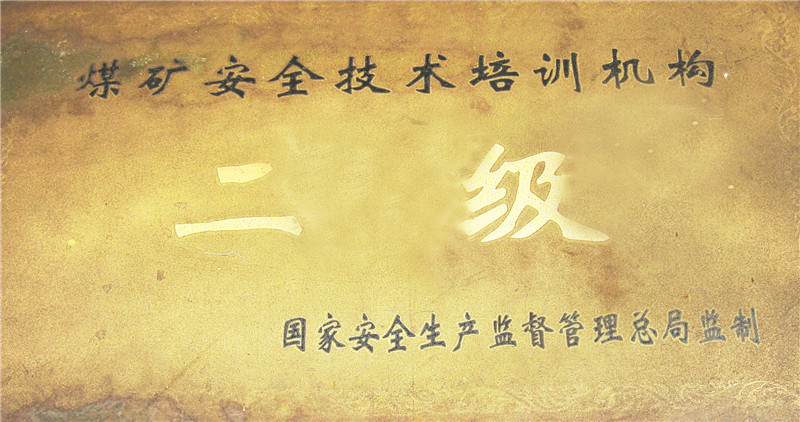 煤矿安全技术培训机构
二级
国家安全生产监督管理总局监制